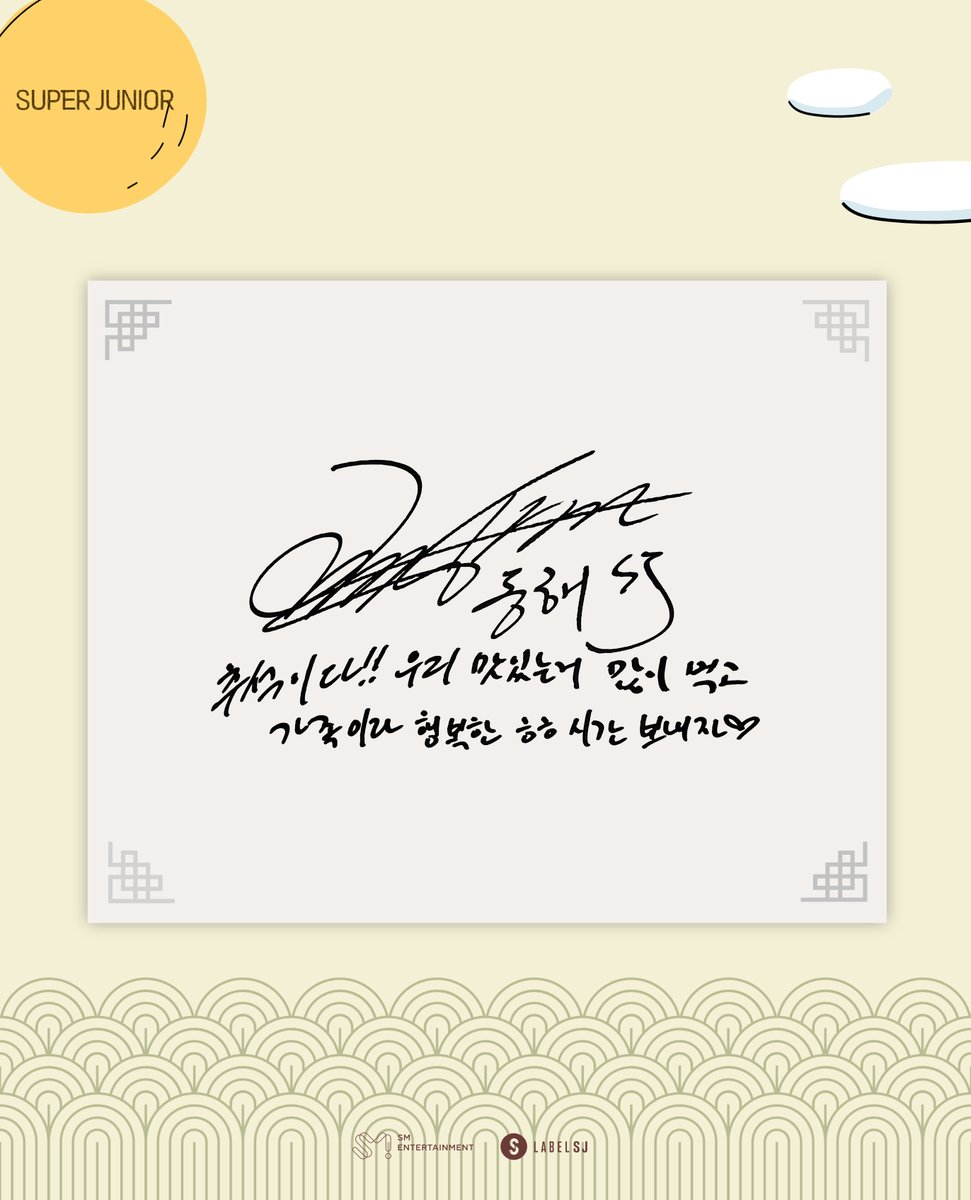 SUPER JUNIOR
동해 SJ
추석이다!! 우리 맛있는거 많이 먹고
가족이랑 행복한 시간 보내자♡
SM
ENTERTAINMENT
LABELSJ